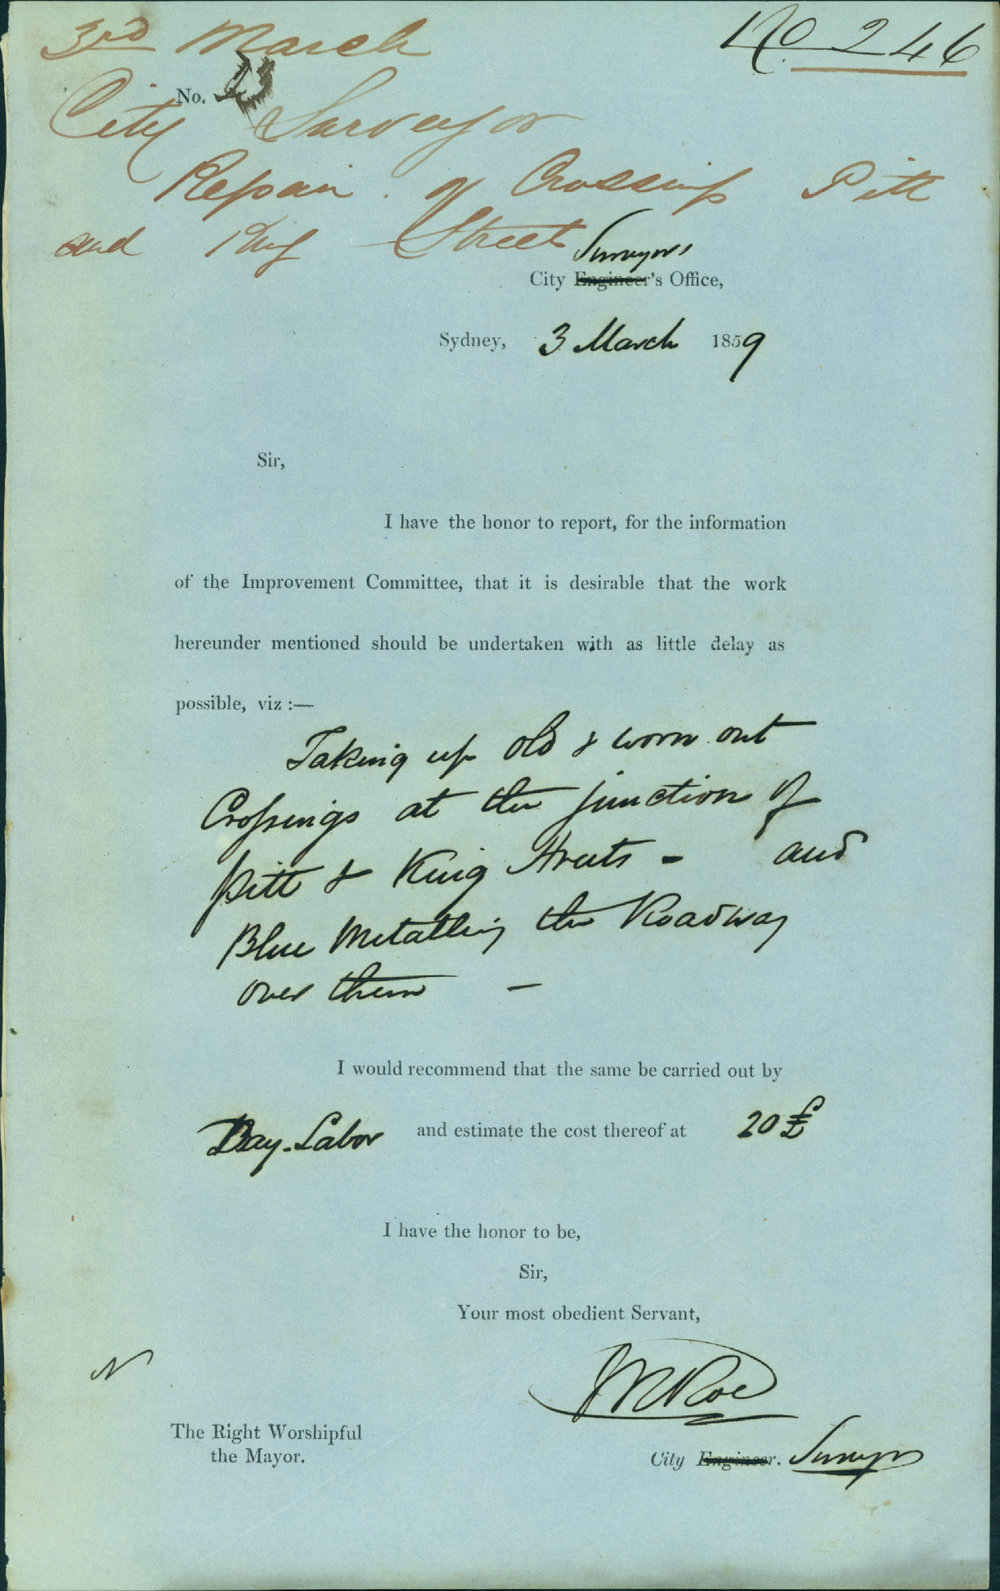 3rd March
No. 246
No. 13
City Surveyor
Repair of Crossings Pitt
and King Street
Surveyors
City Engineer's Office,
Sydney, 3 March 1859
Sir,
I have the honor to report, for the information
of the Improvement Committee, that it is desirable that the work
hereunder mentioned should be undertaken with as little delay as
possible, viz :—
Taking up old & worn out
Crossings at the junction of
Pitt & King Streets - and
Blue Metalling the Roadway
over them —
I would recommend that the same be carried out by
Day-Labor and estimate the cost thereof at 20£
I have the honor to be,
Sir,
Your most obedient Servant,
The Right Worshipful
the Mayor.
City Engineer. Surveyor